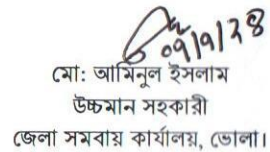 ০৭/৭/২৪
মো: আমিনুল ইসলাম
উচ্চমান সহকারী
জেলা সমবায় কার্যালয়, ভোলা।